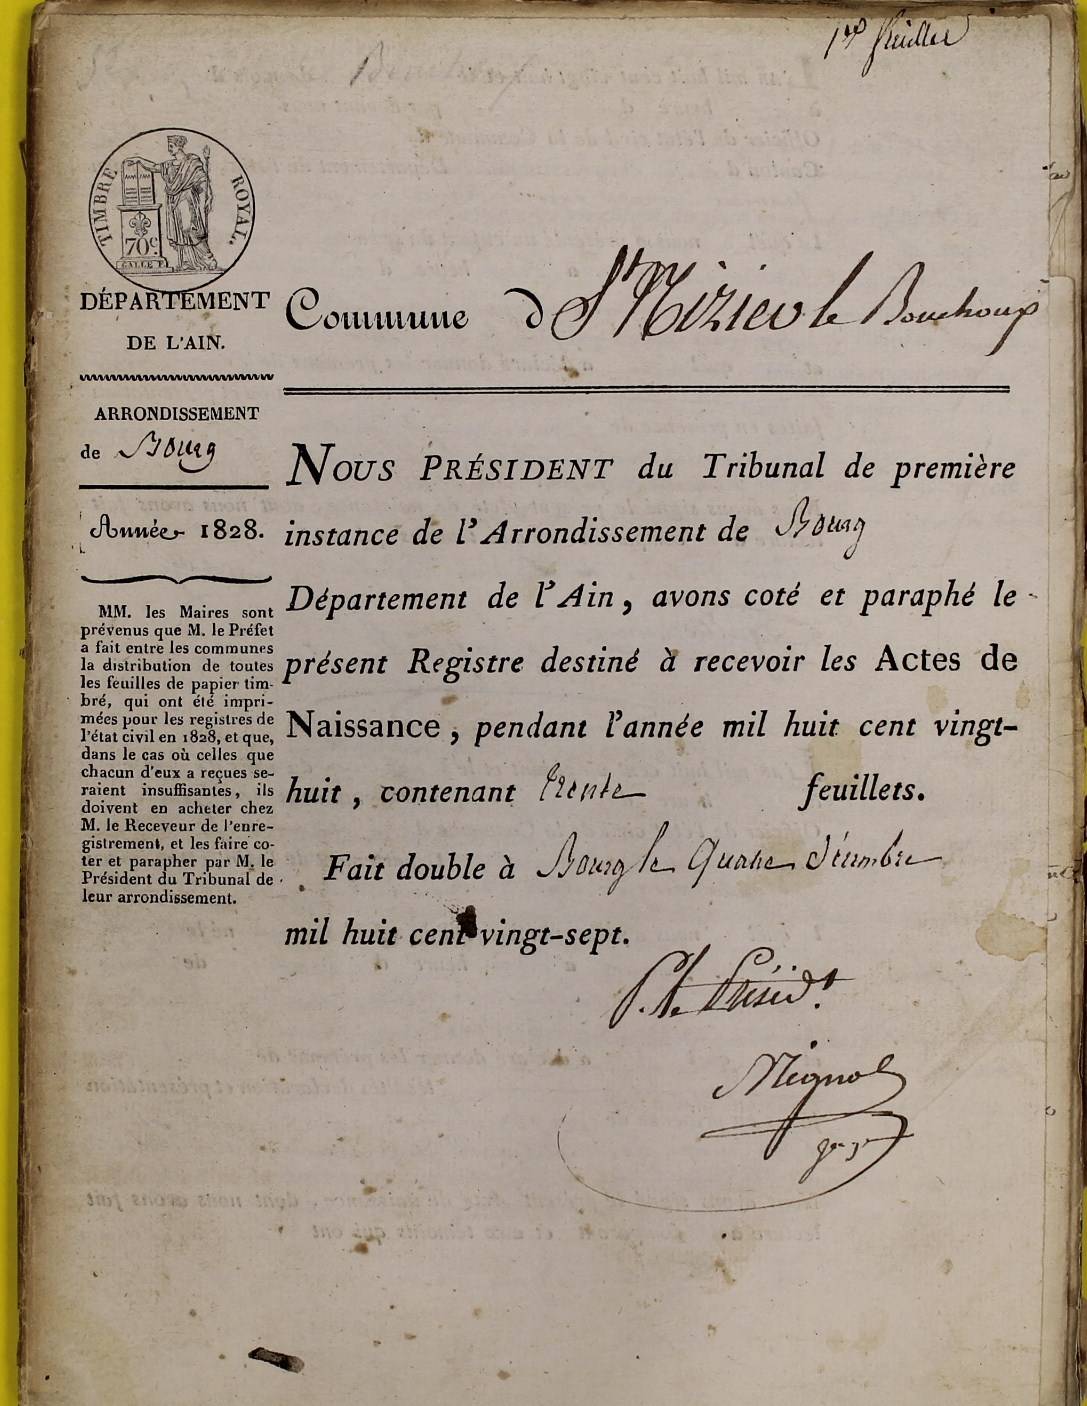 1er feuillet
TIMBRE ROYAL.
70c
DÉPARTEMENT
DE L'AIN.
ARRONDISSEMENT
de Bourg
Année 1828.
MM. les Maires sont
prévenus que M. le Préfet
a fait entre les communes
la distribution de toutes
les feuilles de papier tim-
bré, qui ont été impri-
mées pour les registres de
l'état civil en 1828, et que,
dans le cas où celles que
chacun d'eux a reçues se-
raient insuffisantes, ils
doivent en acheter chez
M. le Receveur de l'enre-
gistrement, et les faire co-
ter et parapher par M. le
Président du Tribunal de
leur arrondissement.
Commune d St Nizier le Bouchoux
NOUS PRÉSIDENT du Tribunal de première
instance de l'Arrondissement de Bourg
Département de l'Ain, avons coté et paraphé le
présent Registre destiné à recevoir les Actes de
Naissance, pendant l'année mil huit cent vingt-
huit, contenant trente feuillets.
Fait double à Bourg le quatre Décembre
mil huit cent vingt-sept.
P. le Présidt.